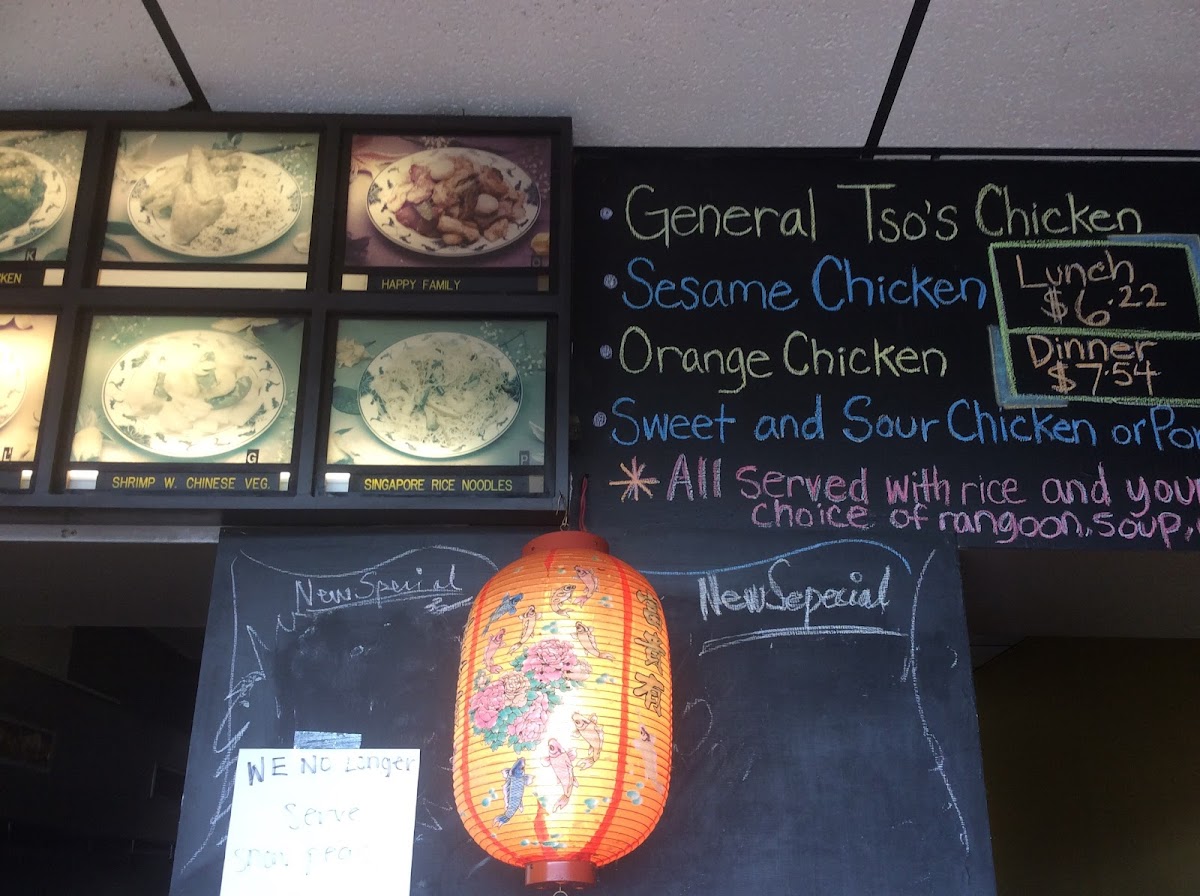 KEN
K
HAPPY FAMILY
SHRIMP W. CHINESE VEG.
G
SINGAPORE RICE NOODLES
P
General Tso's Chicken
Sesame Chicken
Orange Chicken
Sweet and Sour Chicken or Po
Lunch
$6.22
Dinner
$7.54
* All served with rice and your
choice of rangoon, soup,
New Special
New Sepecial
WE NO Longer
Serve
snow peas